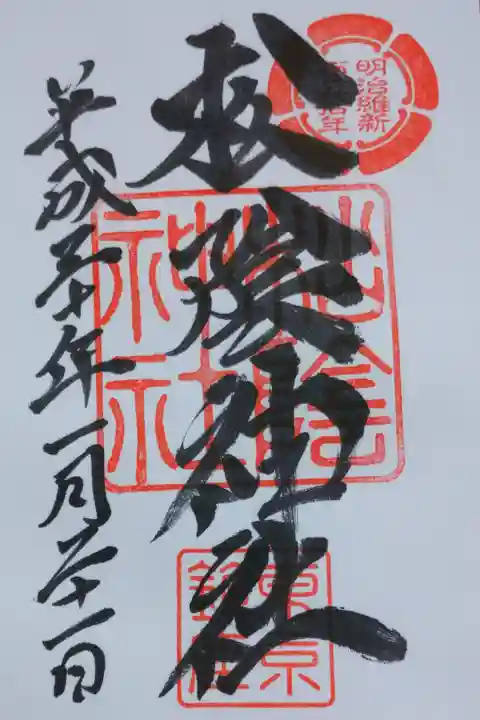 明治維新
百五拾年
松陰神社
松陰神社
東京
鎮座
平成三十年一月二十一日